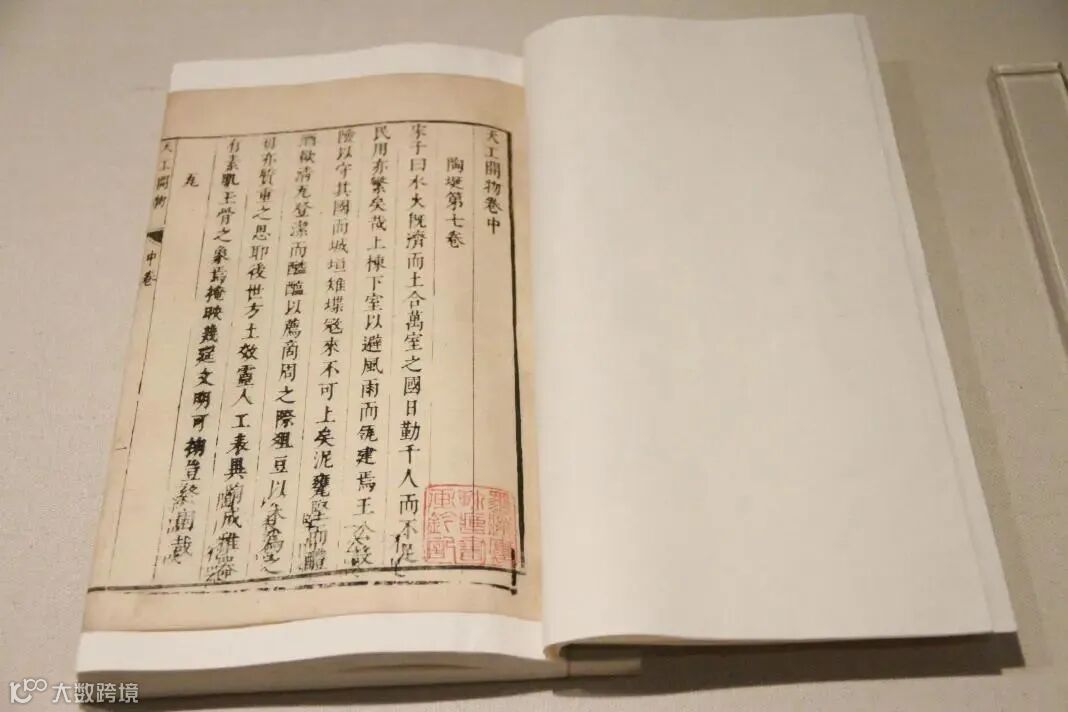 天工開物卷中
陶埏第七卷
宋子曰水火既濟而土合萬室之國日勤千人而不足
民用亦繁矣哉上棟下室以避風雨而瓴建焉王公設
險以守其國而城垣雉堞寇來不可上矣泥甕堅而醴
酒欲清瓦登潔而醯醢以薦商周之際俎豆以木為之
毋亦質重之思耶後世方土效靈人工表異陶成雅器
有素肌玉骨之象焉掩映幾筵文明可掬豈終固哉
瓦
天工開物 中卷 一
大数跨境